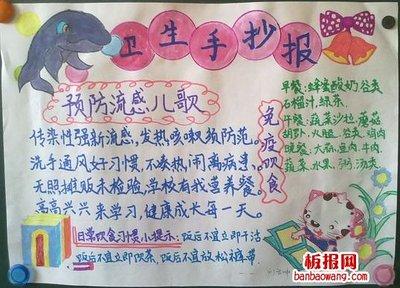 卫生手抄报
预防流感儿歌
传染性强新流感，发热咳嗽须防范。
洗手通风好习惯，不凑热闹离病患。
无照摊贩未检验，学校有我营养餐。
高高兴兴来学习，健康成长每一天。
日常饮食习惯小提示：饭后不宜立即干活
饭后不宜立即饮茶，饭后不宜放松裤带
免疫饮食
早餐：蜂蜜酸奶、谷类
石榴汁，绿茶
午餐：蔬菜沙拉、蘑菇
胡萝卜、火腿、谷类、鸡肉
晚餐：大蒜、鱼肉、牛肉
蔬菜、水果、粥、汤类
板报网
banbaowang.com